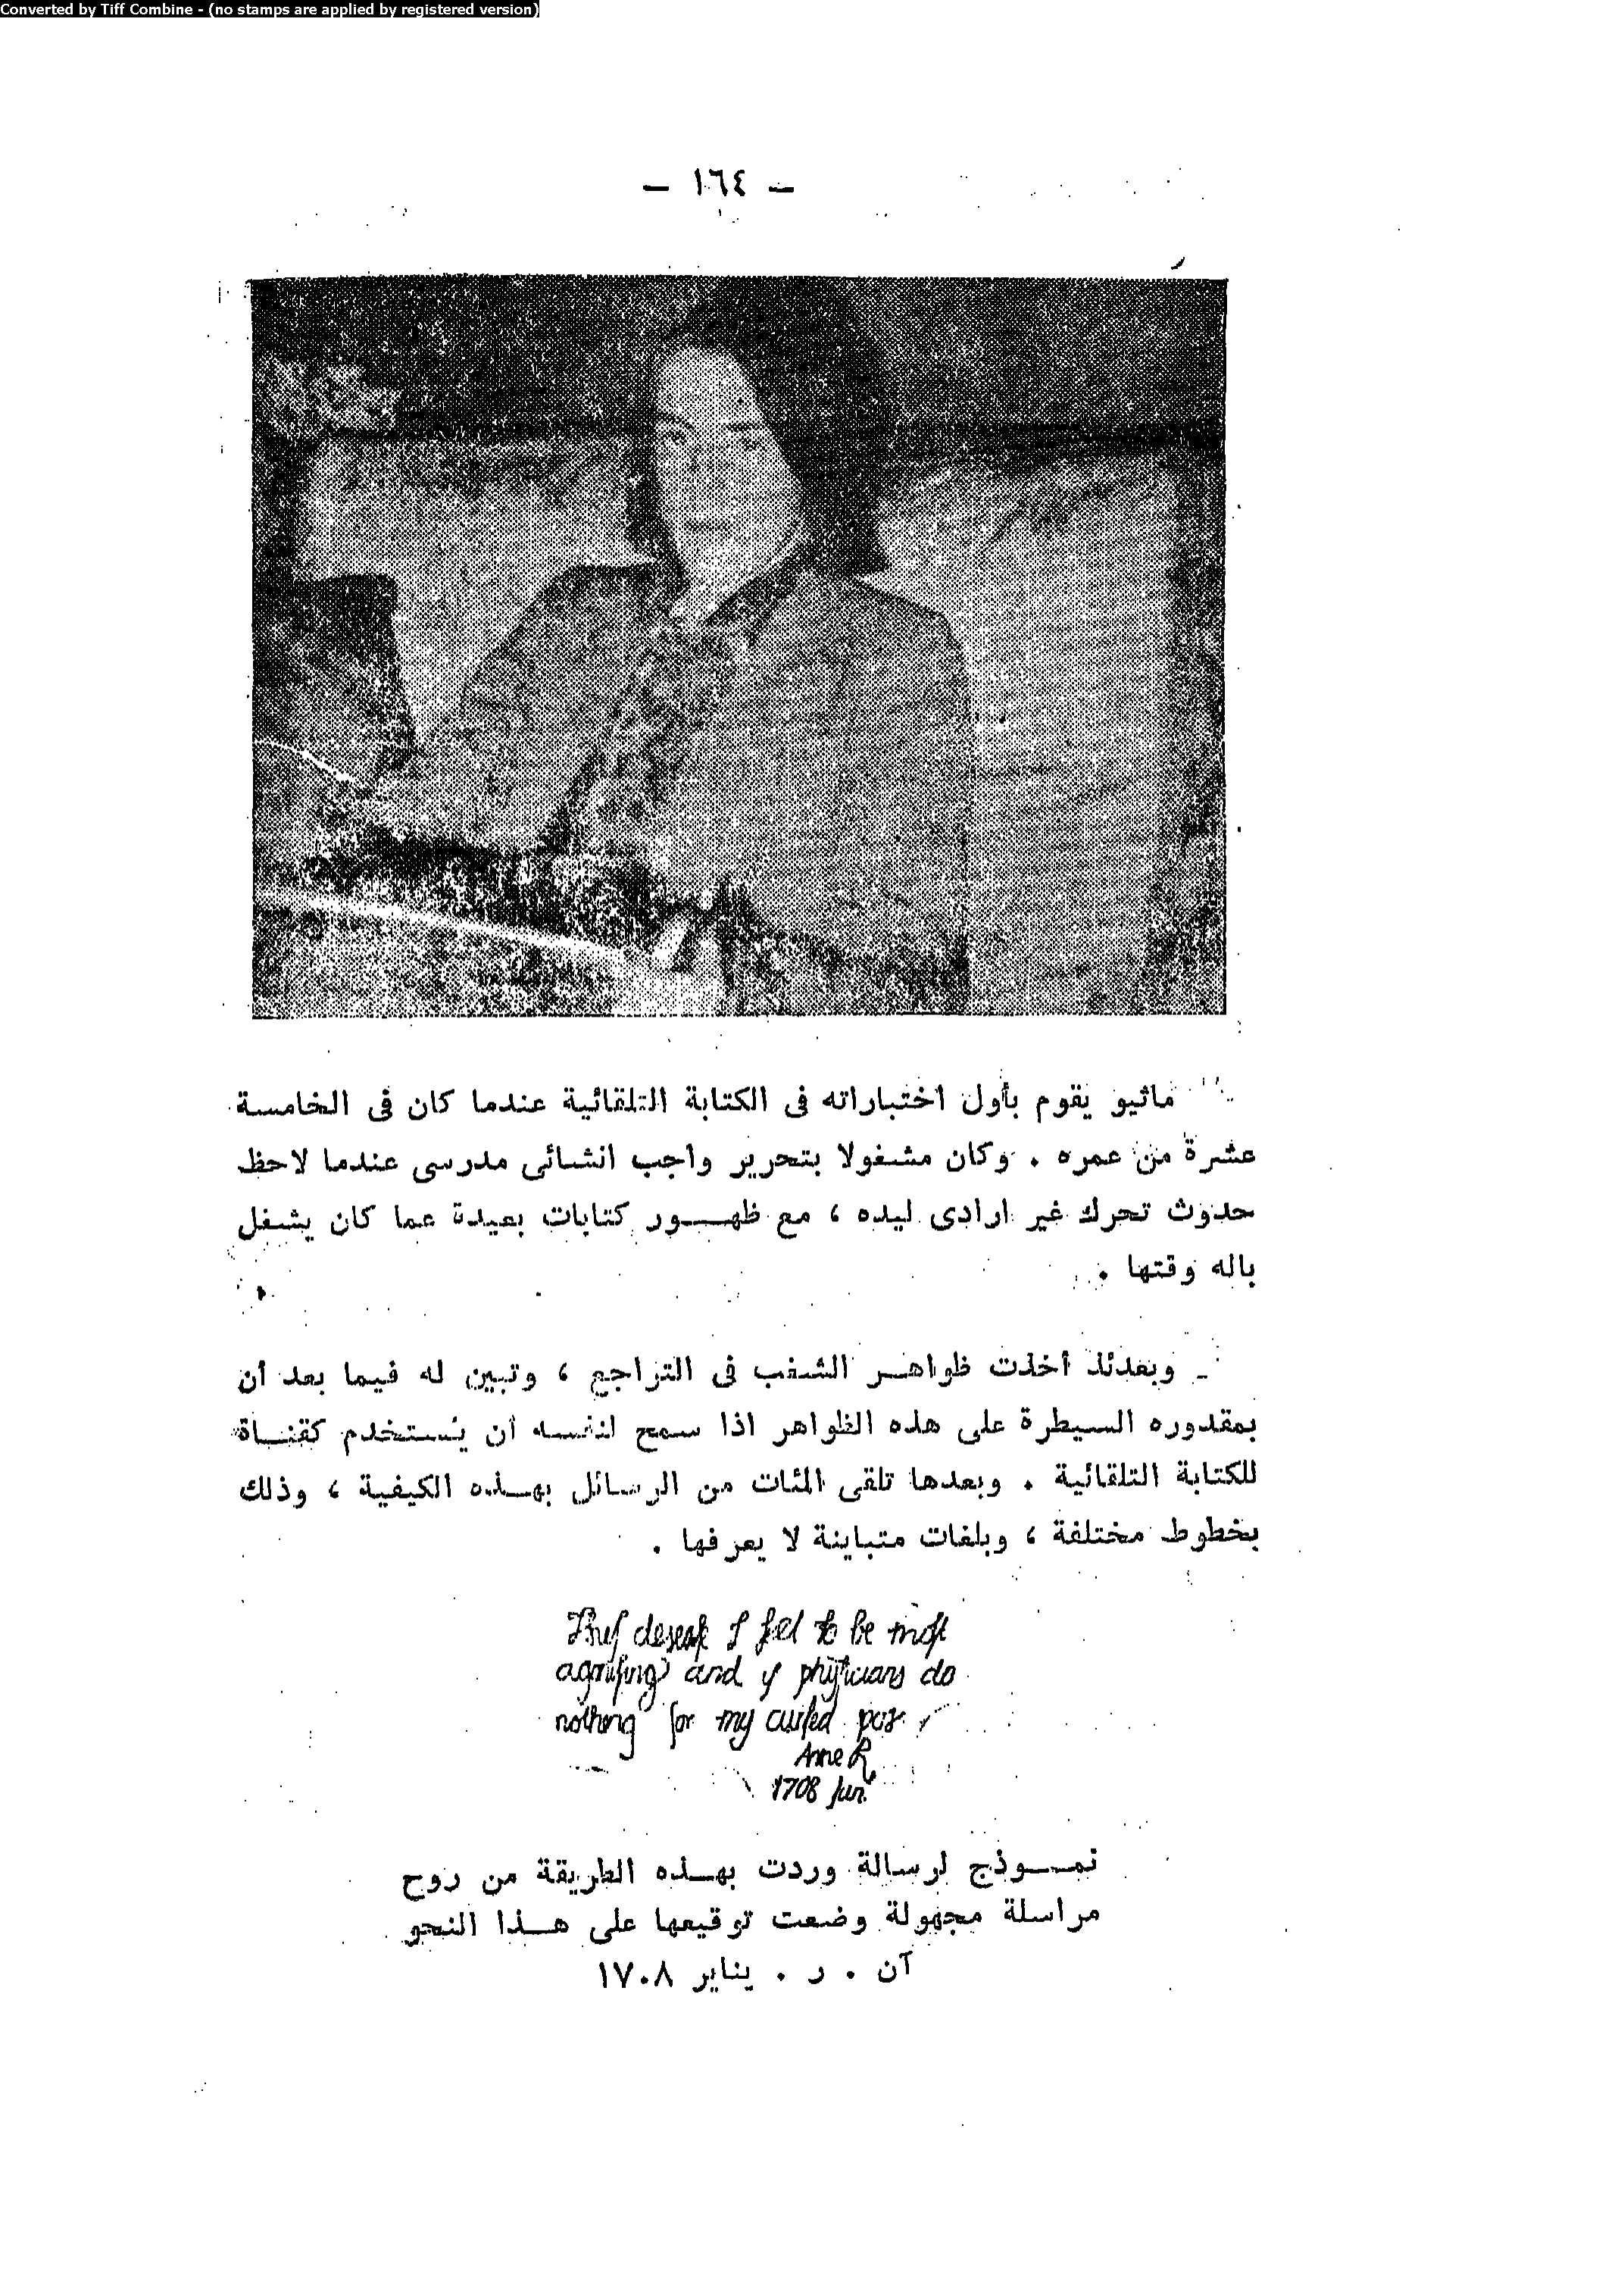 Converted by Tiff Combine - (no stamps are applied by registered version)
— ١٦٤ —
ماثيو يقوم بأول اختباراته فى الكتابة التلقائية عندما كان فى الخامسة
عشرة من عمره . وكان مشغولا بتحرير واجب انشائى مدرسى عندما لاحظ
حدوث تحرك غير ارادى ليده ، مع ظهور كتابات بعيدة عما كان يشغل
باله وقتها .
ـ وبعدئذ أخذت ظواهر الشغب فى التراجع ، وتبين له فيما بعد أن
بمقدوره السيطرة على هذه الظواهر اذا سمح لنفسه أن يُستخدم كقناة
للكتابة التلقائية . وبعدها تلقى المئات من الرسائل بهذه الكيفية ، وذلك
بخطوط مختلفة ، وبلغات متباينة لا يعرفها .
I fel to be most
and y physicians do
nothing for my cursed pox
Anne R
1708 Jan.
نموذج لرسالة وردت بهذه الطريقة من روح
مراسلة مجهولة وضعت توقيعها على هذا النحو
آن . ر . يناير ١٧٠٨